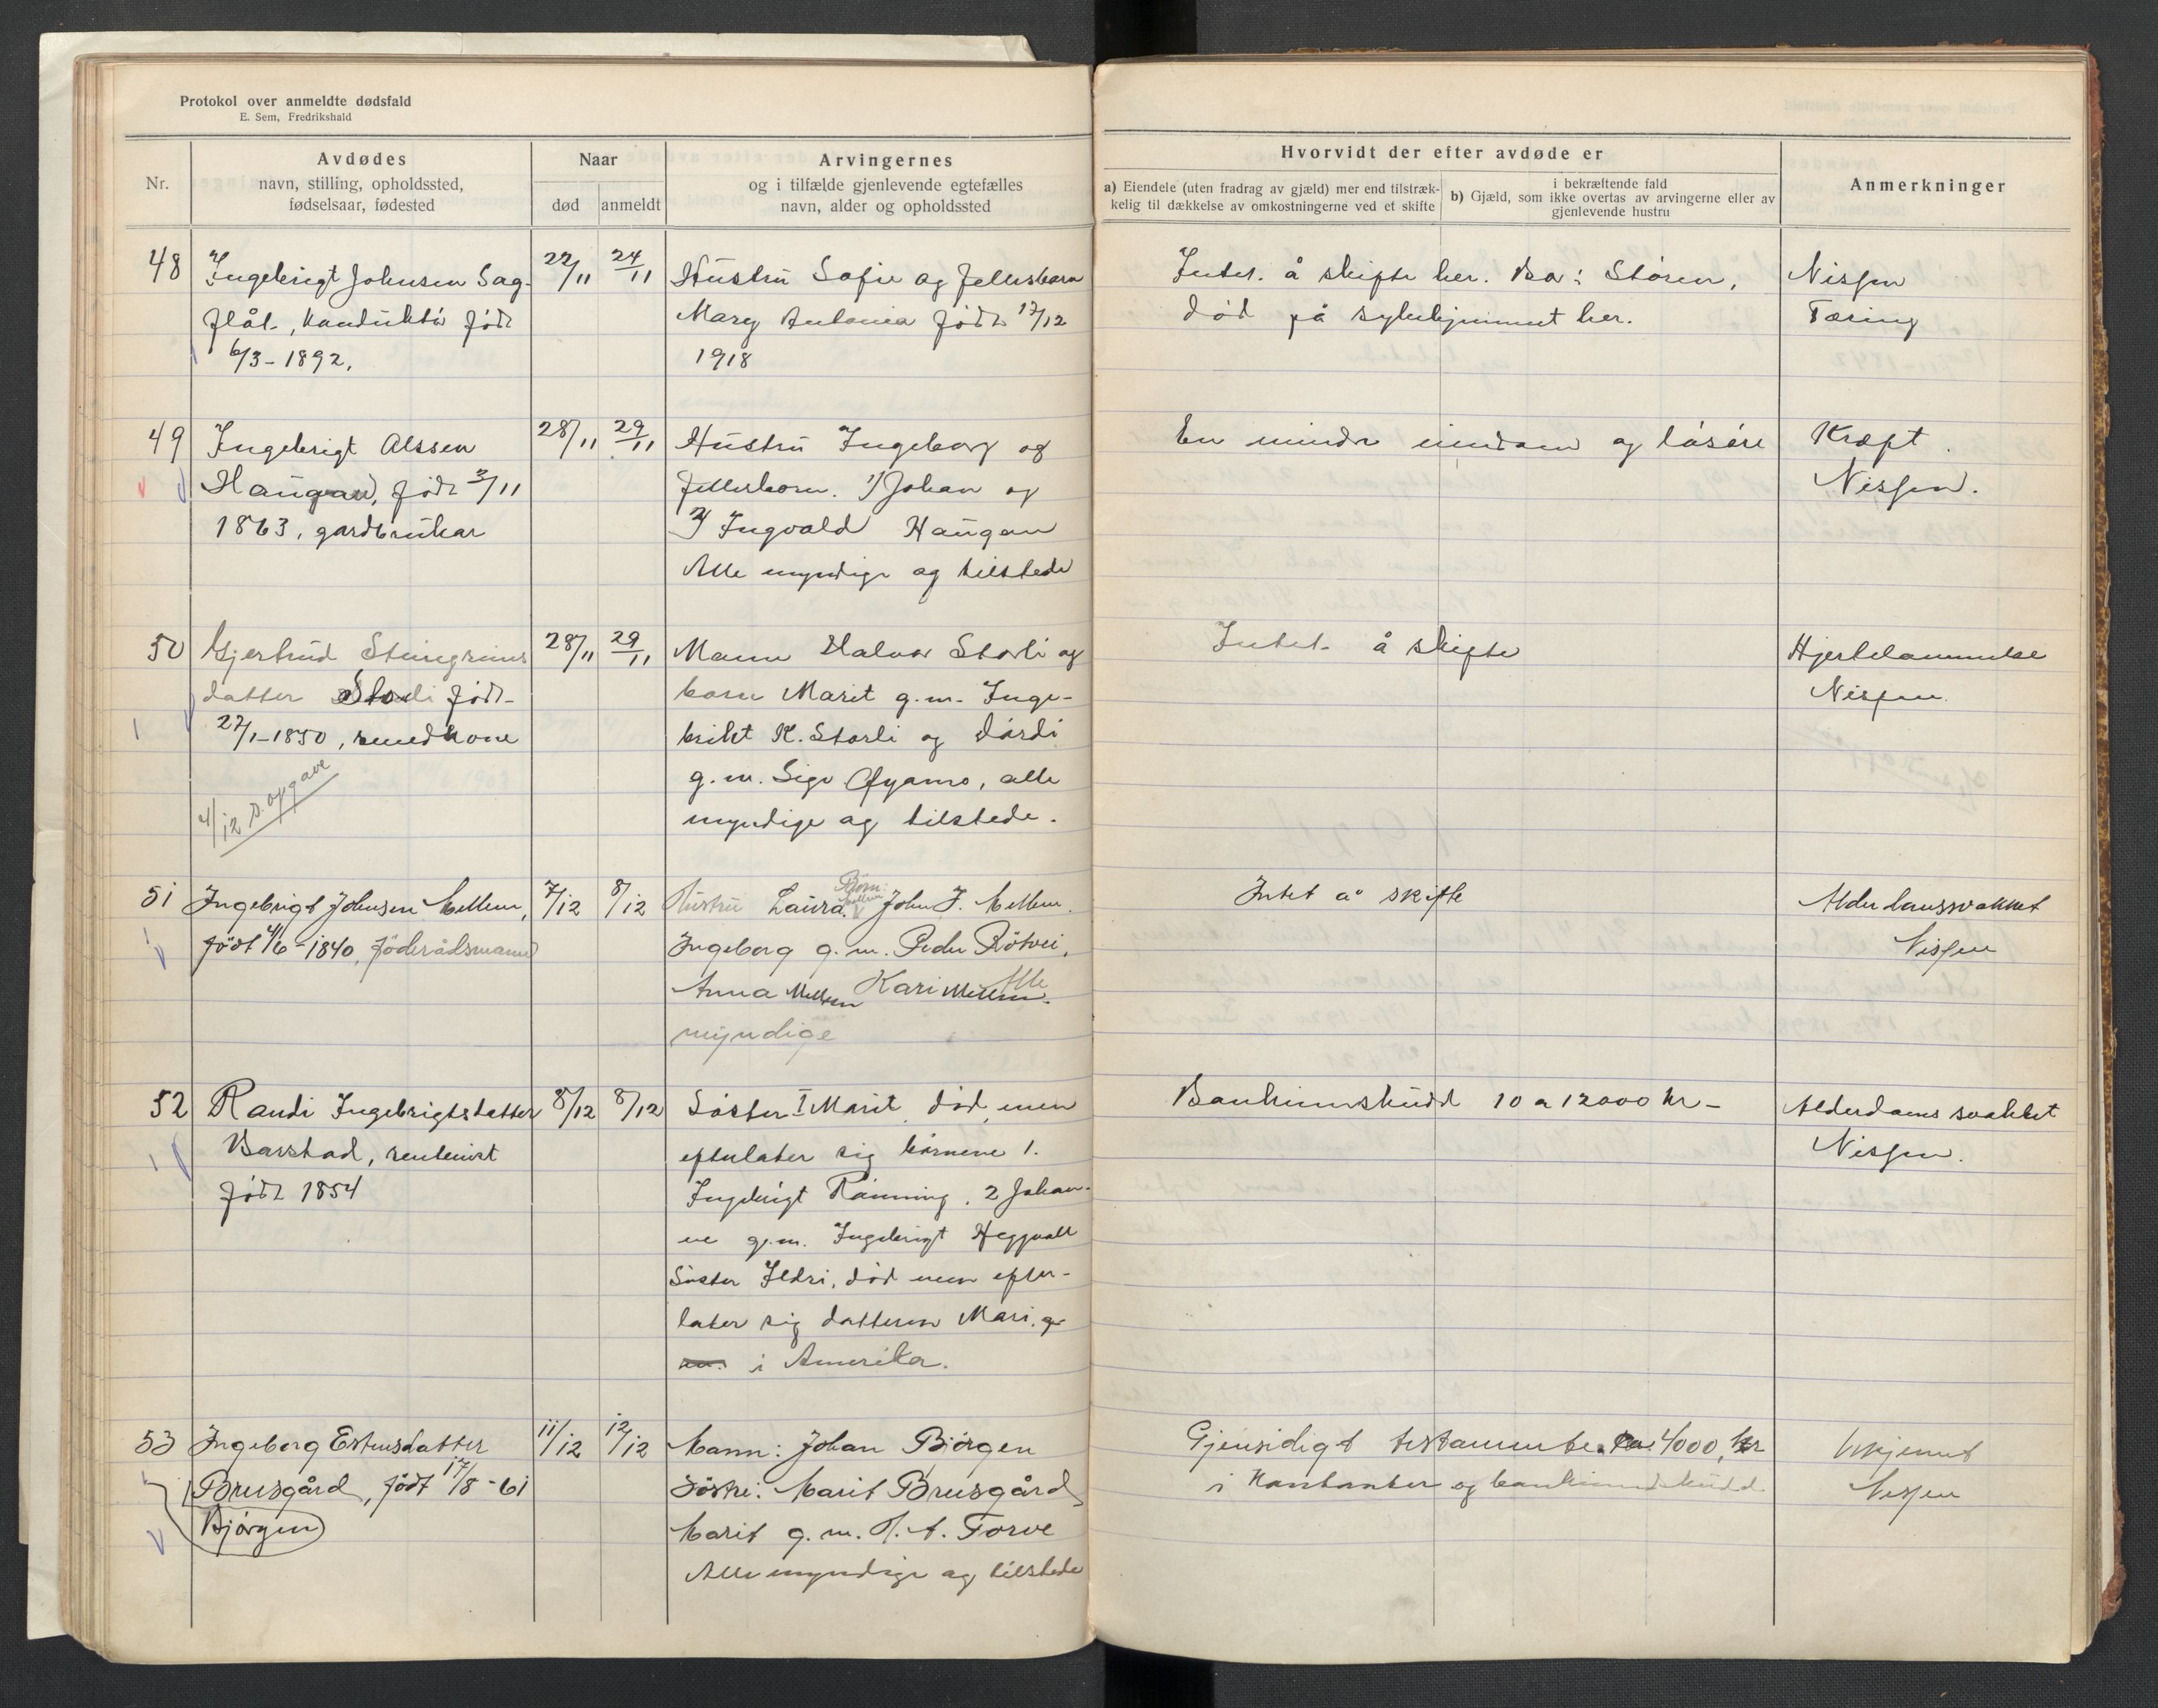 Protokol over anmeldte dødsfald
E. Sem, Fredrikshald
Nr.
Avdødes
navn, stilling, opholdssted,
fødselsaar, fødested
Naar
død
anmeldt
Arvingernes
og i tilfælde gjenlevende egtefælles
navn, alder og opholdssted
Hvorvidt der efter avdøde er
a) Eiendele (uten fradrag av gjæld) mer end tilstræk-
kelig til dækkelse av omkostningerne ved et skifte
i bekræftende fald
b) Gjæld, som ikke overtas av arvingerne eller av
gjenlevende hustru
Anmerkninger
48
Ingebrigt Johnsen Sag-
flåt, konduktør født
6/3-1892.
22/11
24/11
Hustru Sofie og fellesbarn
Mary Antonia født 17/12
1918
Intet å skifte her. Bo: Støren,
død på sykehjemmet her.
Nissen
Tæring
49
Ingebrigt Olssen
Haugan, født 3/11
1863, gardbruker
28/11
29/11
Hustru Ingeborg og
fellesbarn. 1) Johan og
2) Ingvald Haugan
Alle myndige og tilstede
En mindre eiendom og løsøre
Kræft.
Nissen.
50
Gjertrud Steingrims
datter Storli født
27/1-1850, smedkone
4/12 s. opgave
28/11
29/11
Mann Halvor Storli og
barn Marit g.m. Inge-
brikt K. Storli og Dordi
g.m. Sigv Øyamo, alle
myndige og tilstede.
Intet å skifte
Hjertelammelse
Nissen.
51
Ingebrigt Johnsen Mellem,
født 4/6-1840, föderådsmann
7/12
8/12
Børn:
Hustru Laura Mellem John I. Mellem.
Ingeborg g.m. Peder Rötvei,
Anna Mellem Kari Mellem. Alle
myndige
Intet å skifte
Alderdomssvakket
Nissen
52
Randi Ingebrigtsdatter
Barstad, rentenist
født 1854
8/12
8/12
Søster I Marit død, men
efterlater sig børnene 1.
Ingebrigt Rønning, 2 Johan-
ne g.m. Ingebrigt Heggvoll
Søster Ildri, død men efter-
later sig datteren Mari, g
m. i Amerika.
Bankinnskudd 10 a 12000 kr-
Alderdoms svakket
Nissen.
53
Ingeborg Estensdatter
Brusgård, født 17/8-61
Bjørgen
11/12
12/12
Mann: Johan Bjørgen
Söstre: Marit Brusgård
Marit g.m. Torve
Alle myndige og tilstede
Gjensidigt testamente. 4000, kr
i kontanter og bankinnskudd.
Ukjent
Nissen